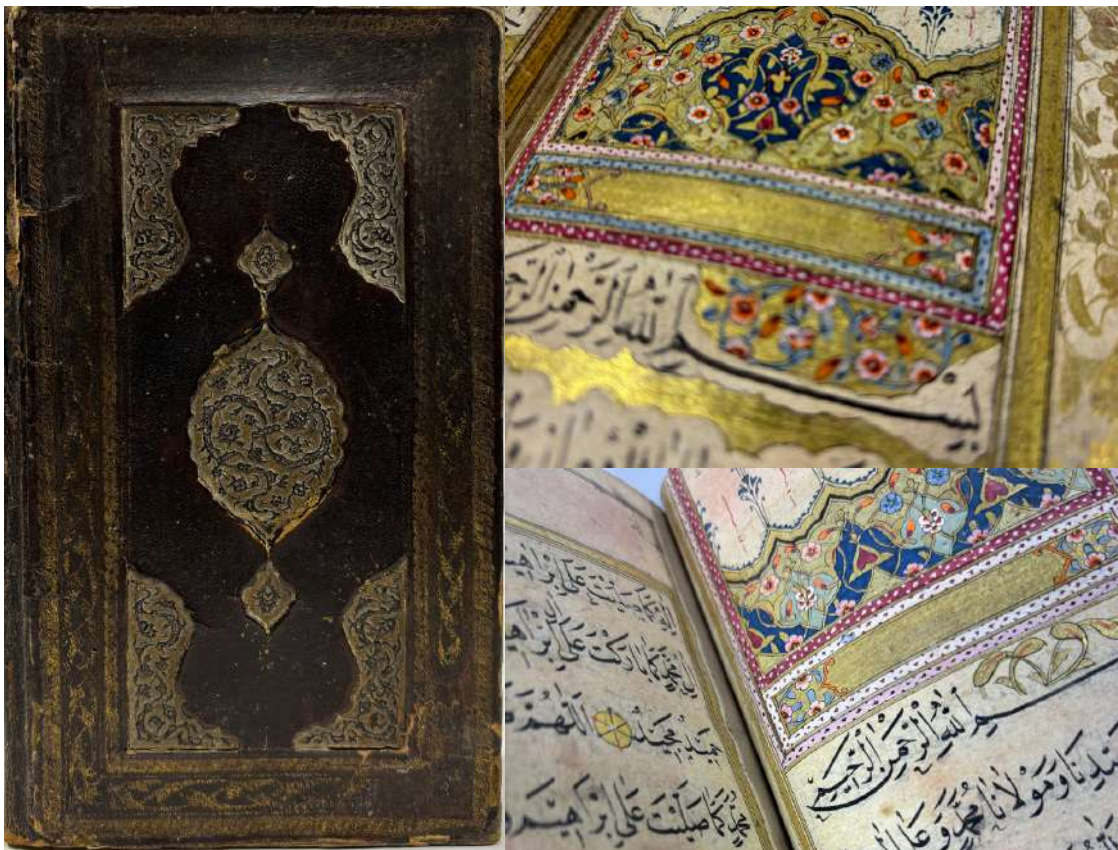 بِسْمِ اللّٰهِ الرَّحْمٰنِ
كَمَا صَلَّيْتَ عَلٰى اِبْرَاهِيمَ
مُحَمَّدٍ كَمَا بَارَكْتَ عَلٰى اِبْرَاهِيمَ
حَمِيدٌ مَجِيدٌ اَللّٰهُمَّ
مُحَمَّدٍ كَمَا صَلَّيْتَ عَلٰى اِبْرَاهِيمَ
بِسْمِ اللّٰهِ الرَّحْمٰنِ الرَّحِيمِ
سَيِّدِنَا وَمَوْلَانَا مُحَمَّدٍ وَعَلٰى